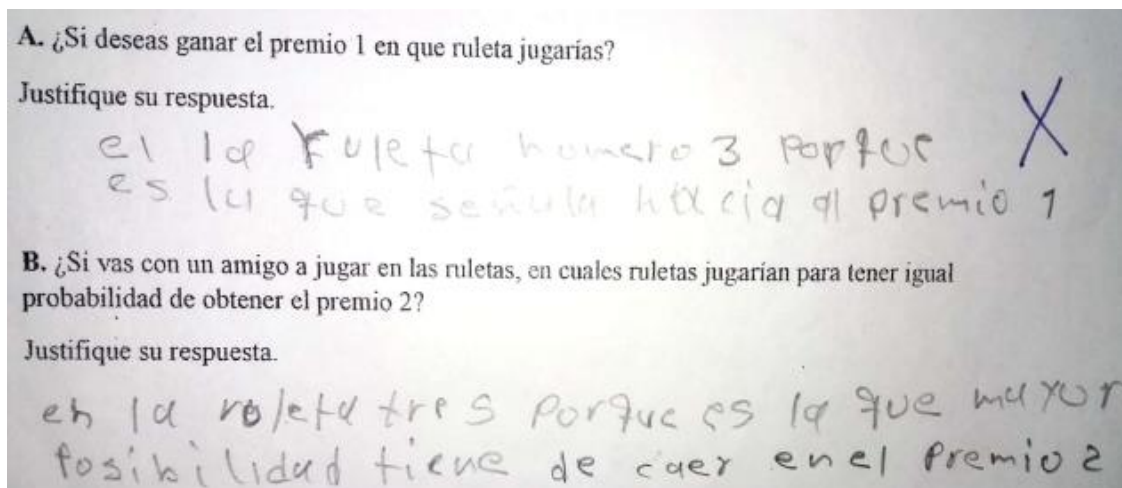 A. ¿Si deseas ganar el premio 1 en que ruleta jugarías?
Justifique su respuesta.
X
el la ruleta numero 3 porque
es la que señula hacia al premio 1
B. ¿Si vas con un amigo a jugar en las ruletas, en cuales ruletas jugarían para tener igual
probabilidad de obtener el premio 2?
Justifique su respuesta.
en la roleta tres porque es la que mayor
posibilidad tiene de caer en el premio 2